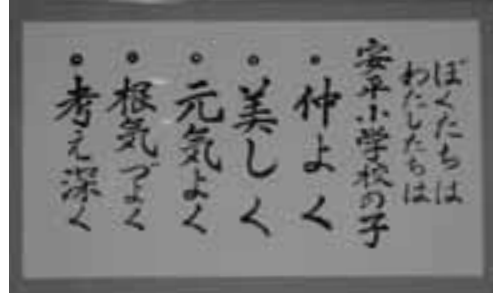 ぼくたちは
わたしたちは
安平小学校の子
・仲よく
・美しく
・元気よく
・根気づよく
・考え深く